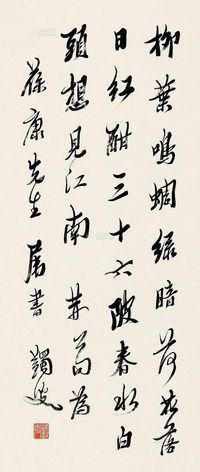 柳葉鳴蜩綠暗荷花落
日红酣三十六陂春水白
頭想見江南 荆公句為
葆康先生屬書 蠲叟